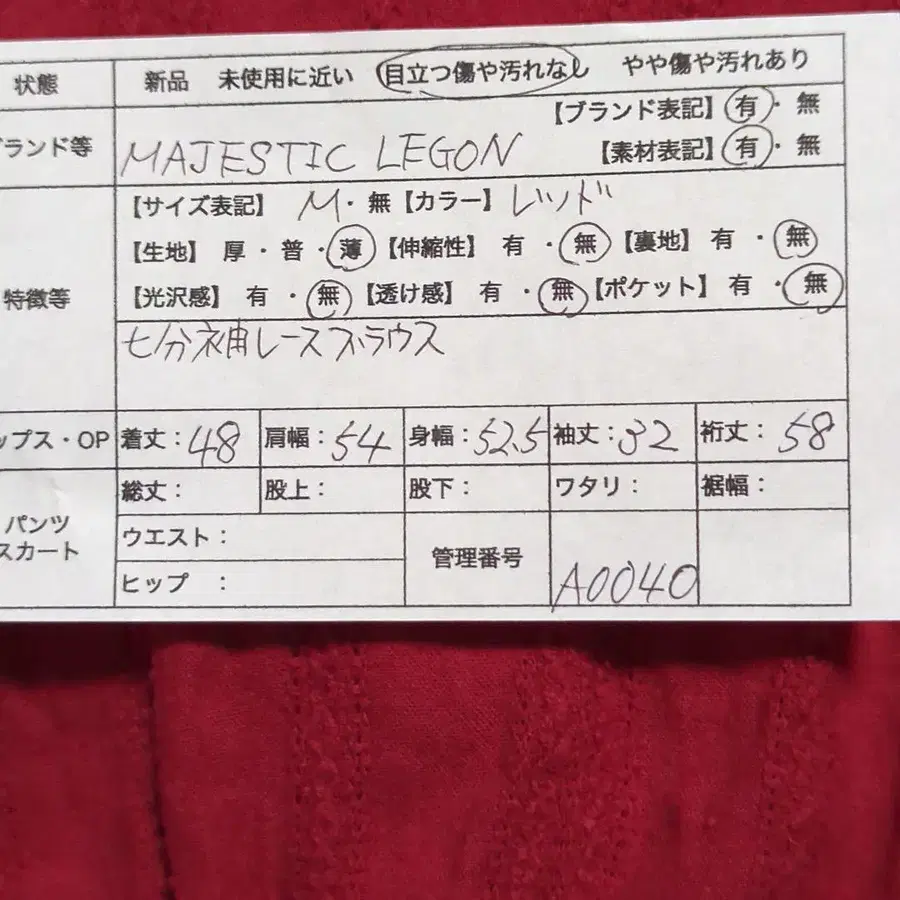 状態 新品 未使用に近い 目立つ傷や汚れなし やや傷や汚れあり
ランド等 MAJESTIC LEGON 【ブランド表記】 有・無
【素材表記】 有・無
特徴等 【サイズ表記】 M・無 【カラー】 レッド
【生地】 厚・普・薄 【伸縮性】 有・無 【裏地】 有・無
【光沢感】 有・無 【透け感】 有・無 【ポケット】 有・無
七分袖レースブラウス
ップス・OP 着丈：48 肩幅：54 身幅：52.5 袖丈：32 裄丈：58
パンツ
スカート
総丈： 股上： 股下： ワタリ： 裾幅：
ウエスト：
ヒップ ：
管理番号 A0040